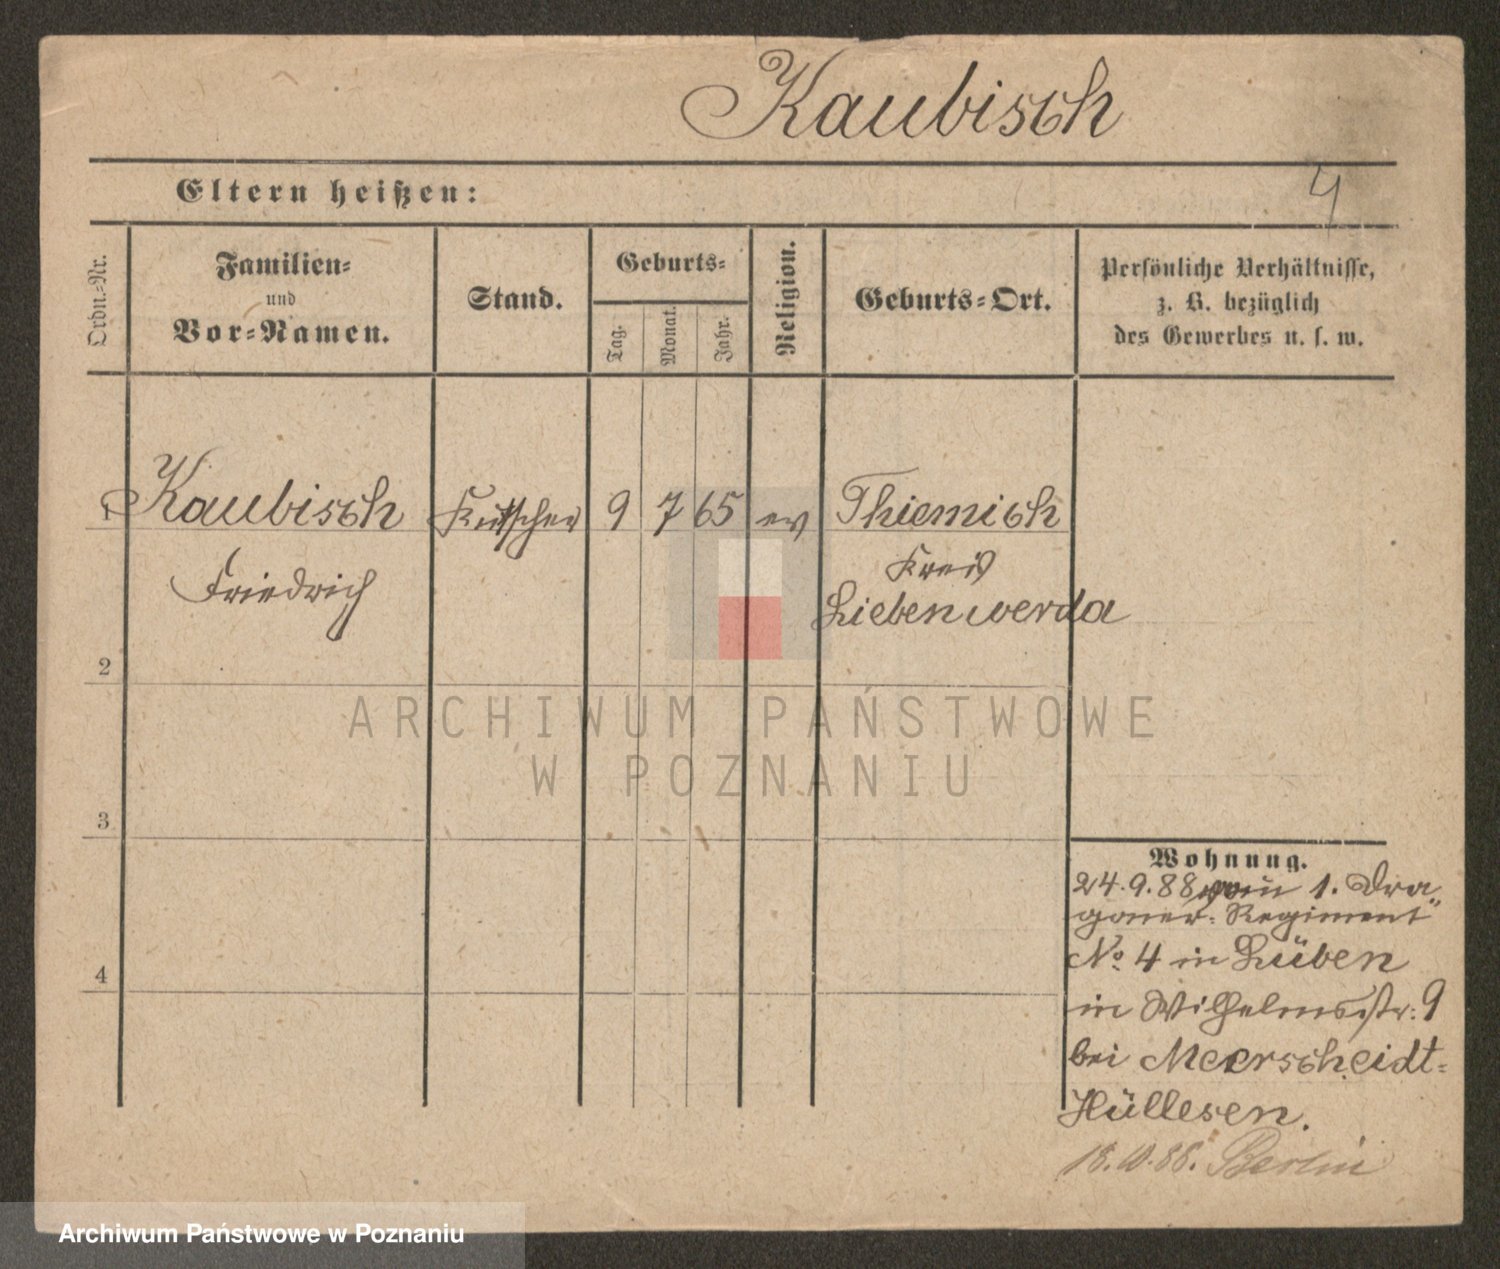 Kaubisch
Eltern heißen:
4
Ordn.-Nr.
Familien-
und
Vor-Namen.
Stand.
Geburts-
Tag.
Monat.
Jahr.
Religion.
Geburts-Ort.
Persönliche Verhältnisse,
z. B. bezüglich
des Gewerbes u. s. w.
1 Kaubisch Kutscher 9 7 65 ev Thiemich
Friedrich
Kreis
Liebenwerda
2
3
4
Wohnung.
24.9.88 vom 1. Dra„
goner: Regiment
No. 4 in Lüben
in Wilhelmsstr: 9
bei Meerscheidt-
Hüllesen.
18.10.88. Berlin
ARCHIWUM PAŃSTWOWE
W POZNANIU
Archiwum Państwowe w Poznaniu